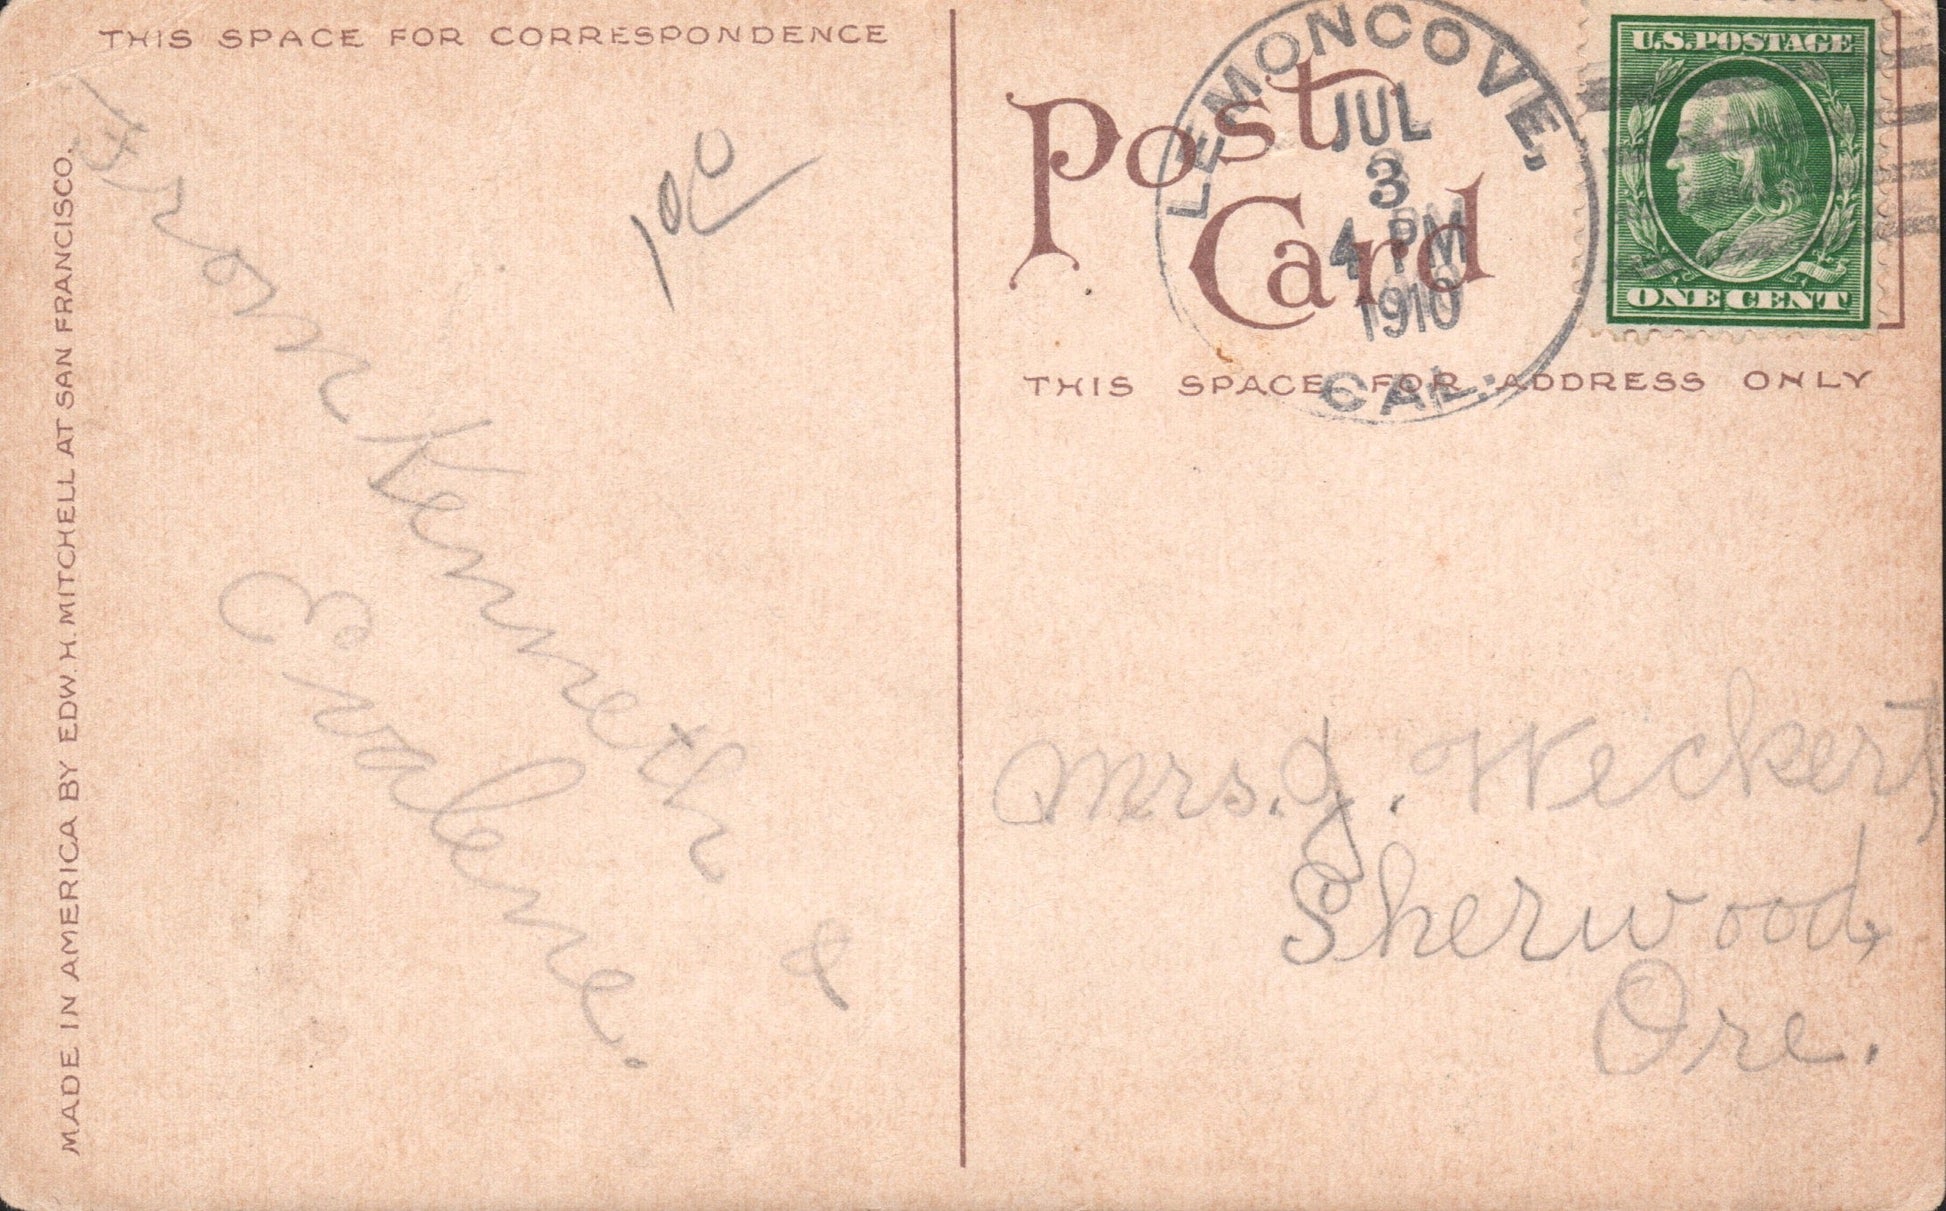 THIS SPACE FOR CORRESPONDENCE
MADE IN AMERICA BY EDW. H. MITCHELL AT SAN FRANCISCO.
From Kenneth &
Evalene.
100
Post
Card
THIS SPACE FOR ADDRESS ONLY
LEMONCOVE,
JUL
3
4 PM
1910
CAL.
U.S. POSTAGE
ONE CENT
Mrs. J. Weckert,
Sherwood,
Ore.